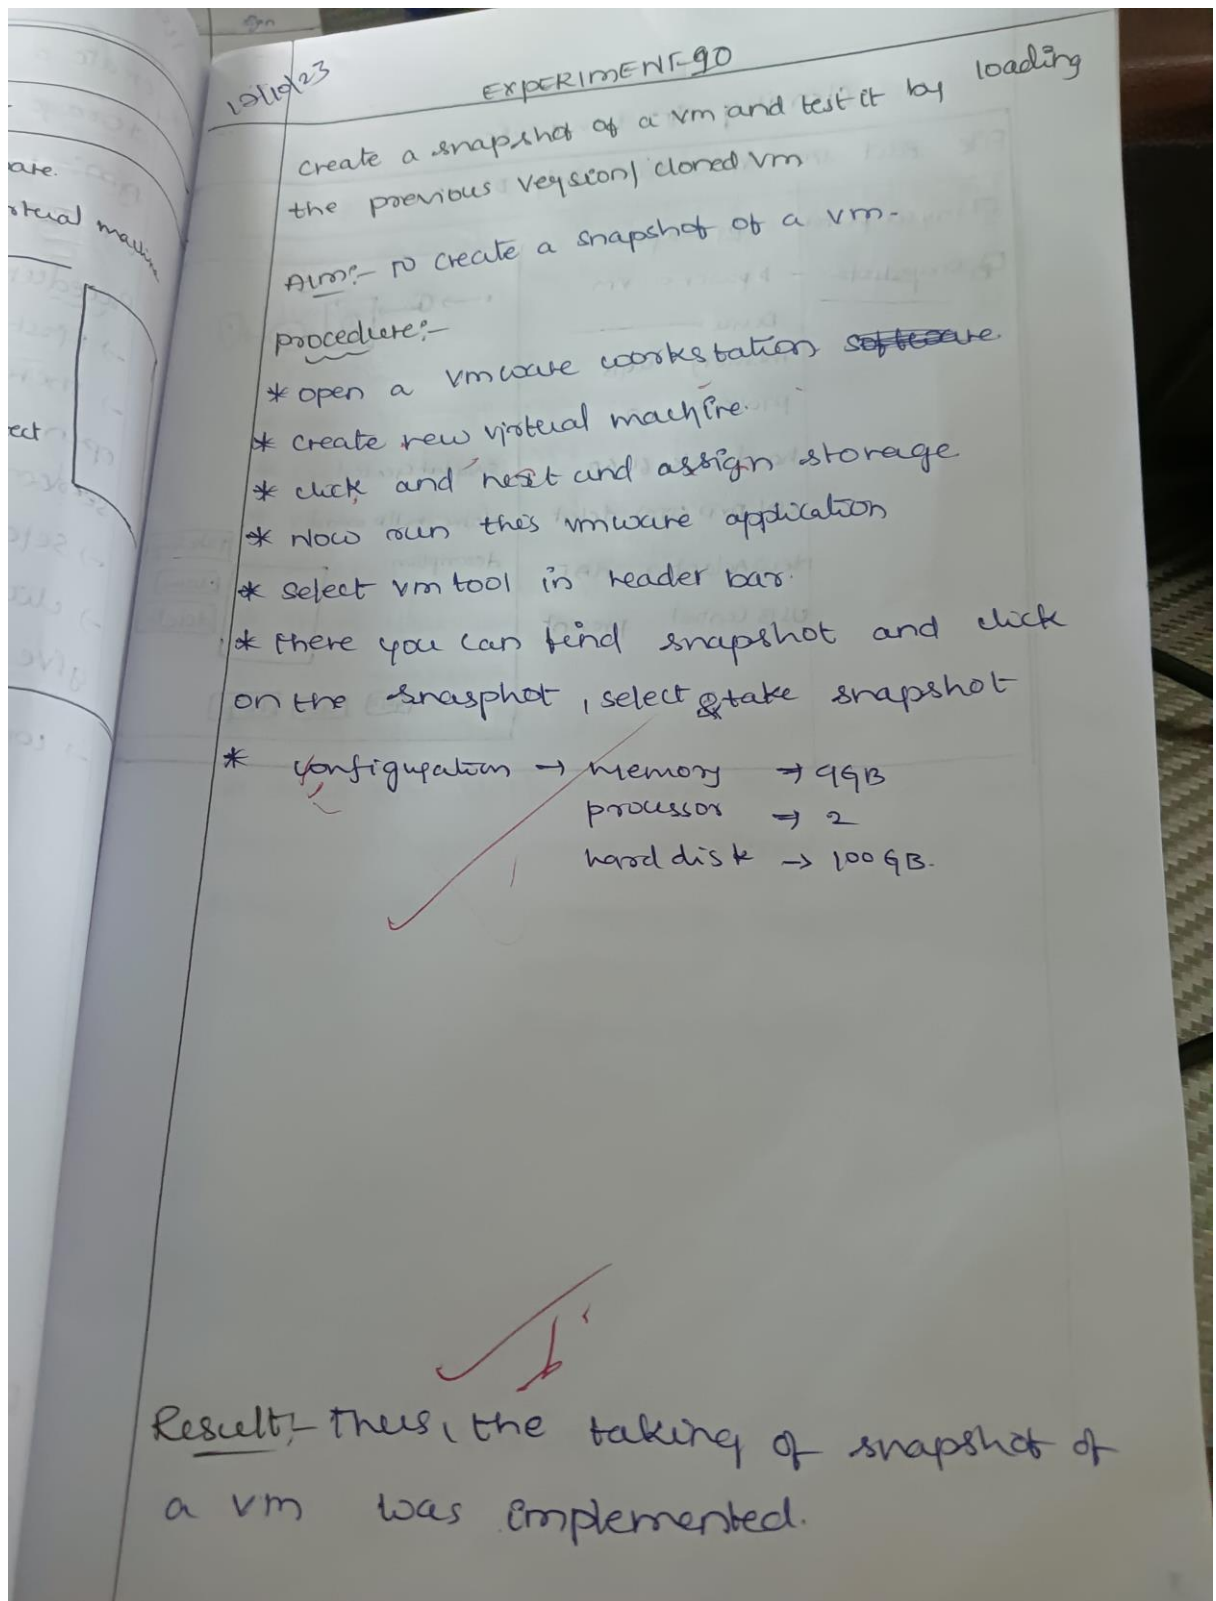 EXPERIMENT-90
create a snapshot of a vm and test it by loading
the previous version/ cloned vm
AIM:- To create a snapshot of a vm.
procedure:-
* open a vmware workstation software.
* create new virtual machine.
* click and next and assign storage
* Now run this vmware application
* select vm tool in header bar.
* there you can find snapshot and click
on the snasphot, select & take snapshot
* configuration → memory → 9GB
processor → 2
hard disk → 100 GB.
Result:- Thus, the taking of snapshot of
a vm was implemented.
are.
rtual machine
ect